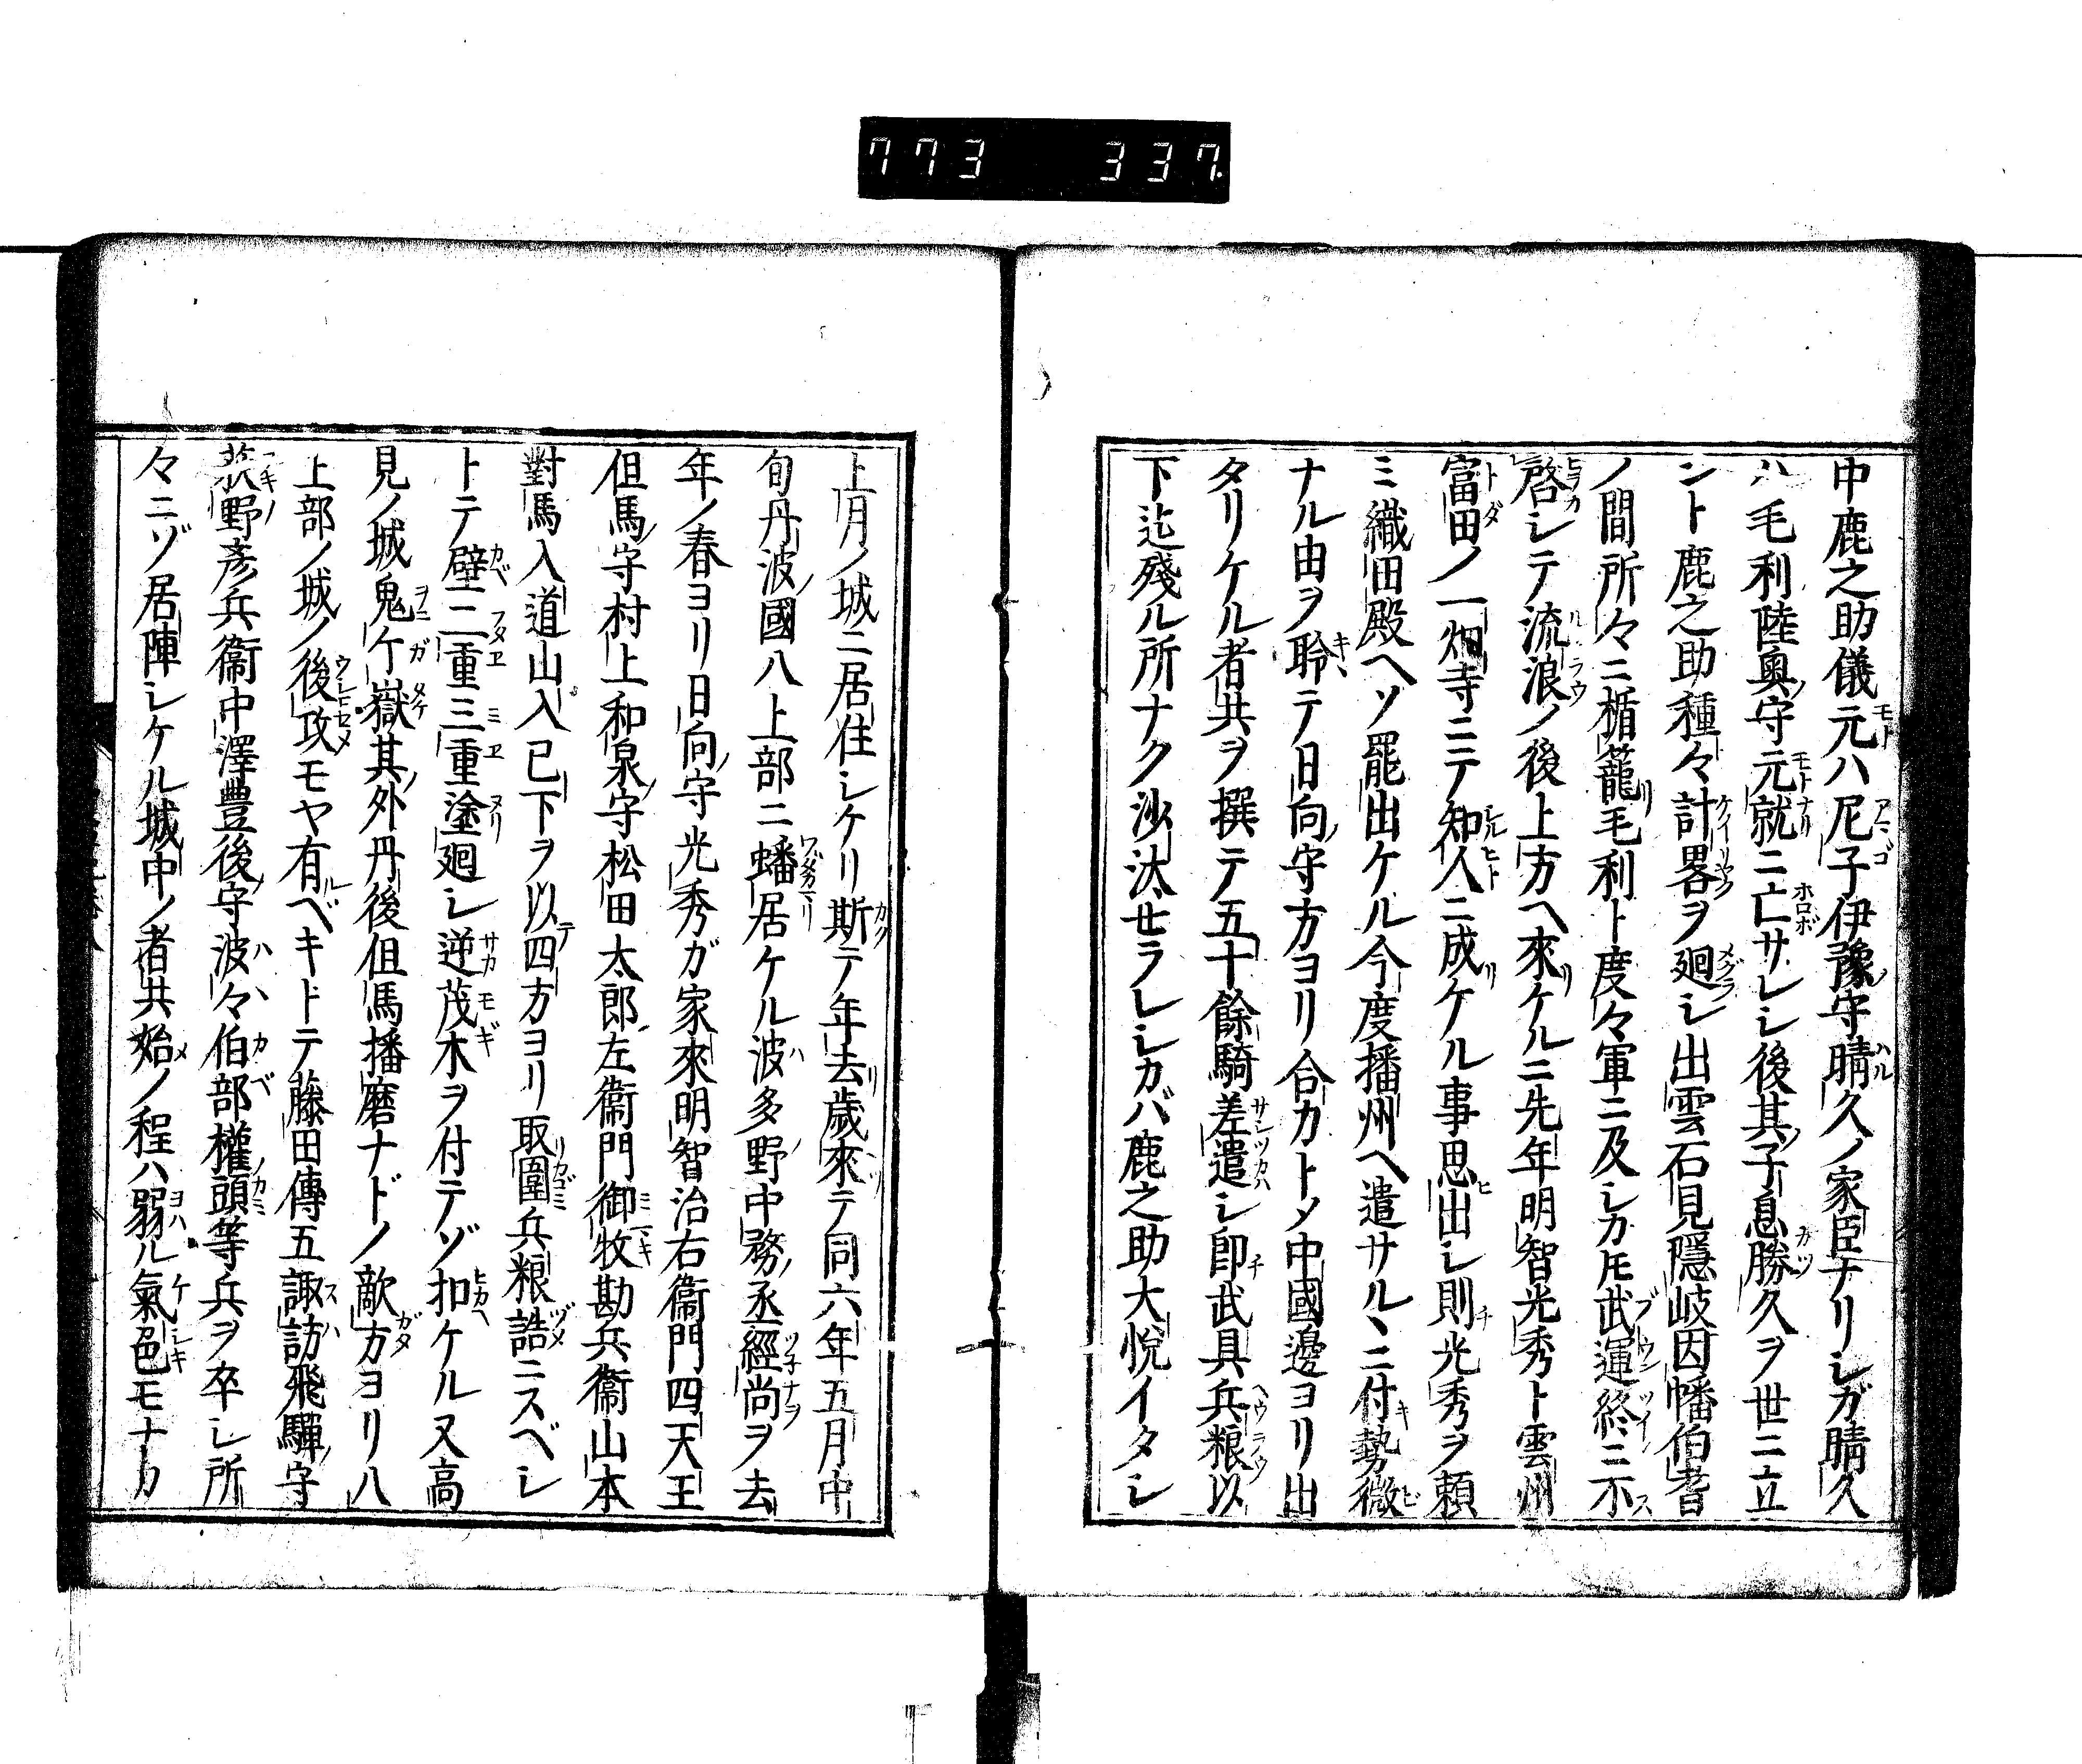 773 337
中鹿之助儀元ハ尼子伊豫守晴久ノ家臣ナリシガ晴久
ハ毛利陸奥守元就ニ亡サレシ後其子息勝久ヲ世ニ立
ント鹿之助種々計畧ヲ廻シ出雲石見隱岐因幡伯耆
ノ間所々ニ楯籠毛利ト度々軍ニ及シカ𪜈武運終ニ不
啓シテ流浪ノ後上方ヘ來ケルニ先年明智光秀ト雲州
富田ノ一畑寺ニテ知人ニ成ケル事思出シ則光秀ヲ頼
ミ織田殿ヘソ罷出ケル今度播州ヘ遣サルヽニ付勢微
ナル由ヲ聆テ日向守方ヨリ合力トメ中國邊ヨリ出
タリケル者共ヲ撰テ五十餘騎差遣シ即武具兵粮以
下迄殘ル所ナク沙汰せラレシカバ鹿之助大悦イタシ
上月ノ城ニ居住シケリ斯テ年去歳來テ同六年五月中
旬丹波國八上部ニ蟠居ケル波多野中務丞經尚ヲ去
年ノ春ヨリ日向守光秀ガ家來明智治右衞門四天王
但馬守村上和泉守松田太郎左衞門御牧勘兵衞山本
對馬入道山入已下ヲ以四方ヨリ取圍兵粮詰ニスベシ
トテ壁二重三重塗廻シ逆茂木ヲ付テゾ扣ケル又高
見ノ城鬼ケ嶽其外丹後但馬播磨ナドノ敵方ヨリ八
上部ノ城ノ後攻モヤ有ベキトテ藤田傳五諏訪飛驒守
荻野彦兵衞中澤豊後守波々伯部權頭等兵ヲ卒シ所
々ニゾ居陣シケル城中ノ者共始ノ程ハ弱ル氣色モナカ